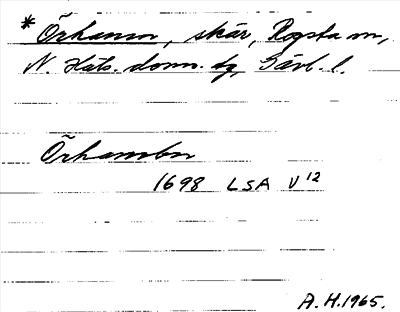 * Örhamn, skär, Rogsta sn,
N. Häls. domn. dg, Gävl. l.
Örhambn
1698 LSA V 12
A. H. 1965.